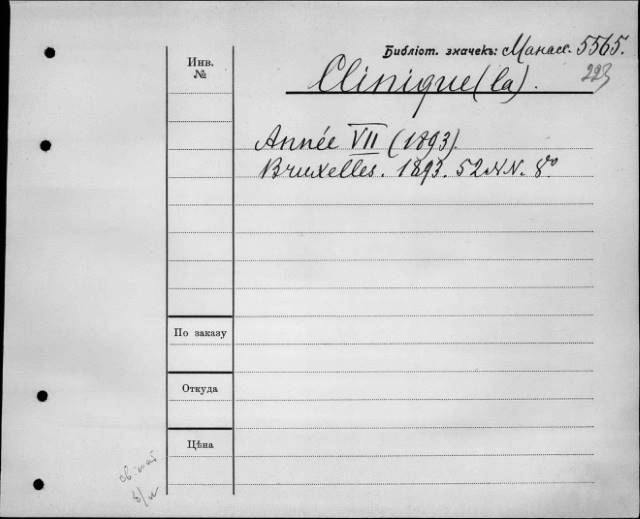 Инв.
№
Библіот. значекъ: Манасс. 5565.
223
Clinique (la).
Année VII (1893).
Bruxelles. 1893. 52 NN. 8º
По заказу
Откуда
Цѣна